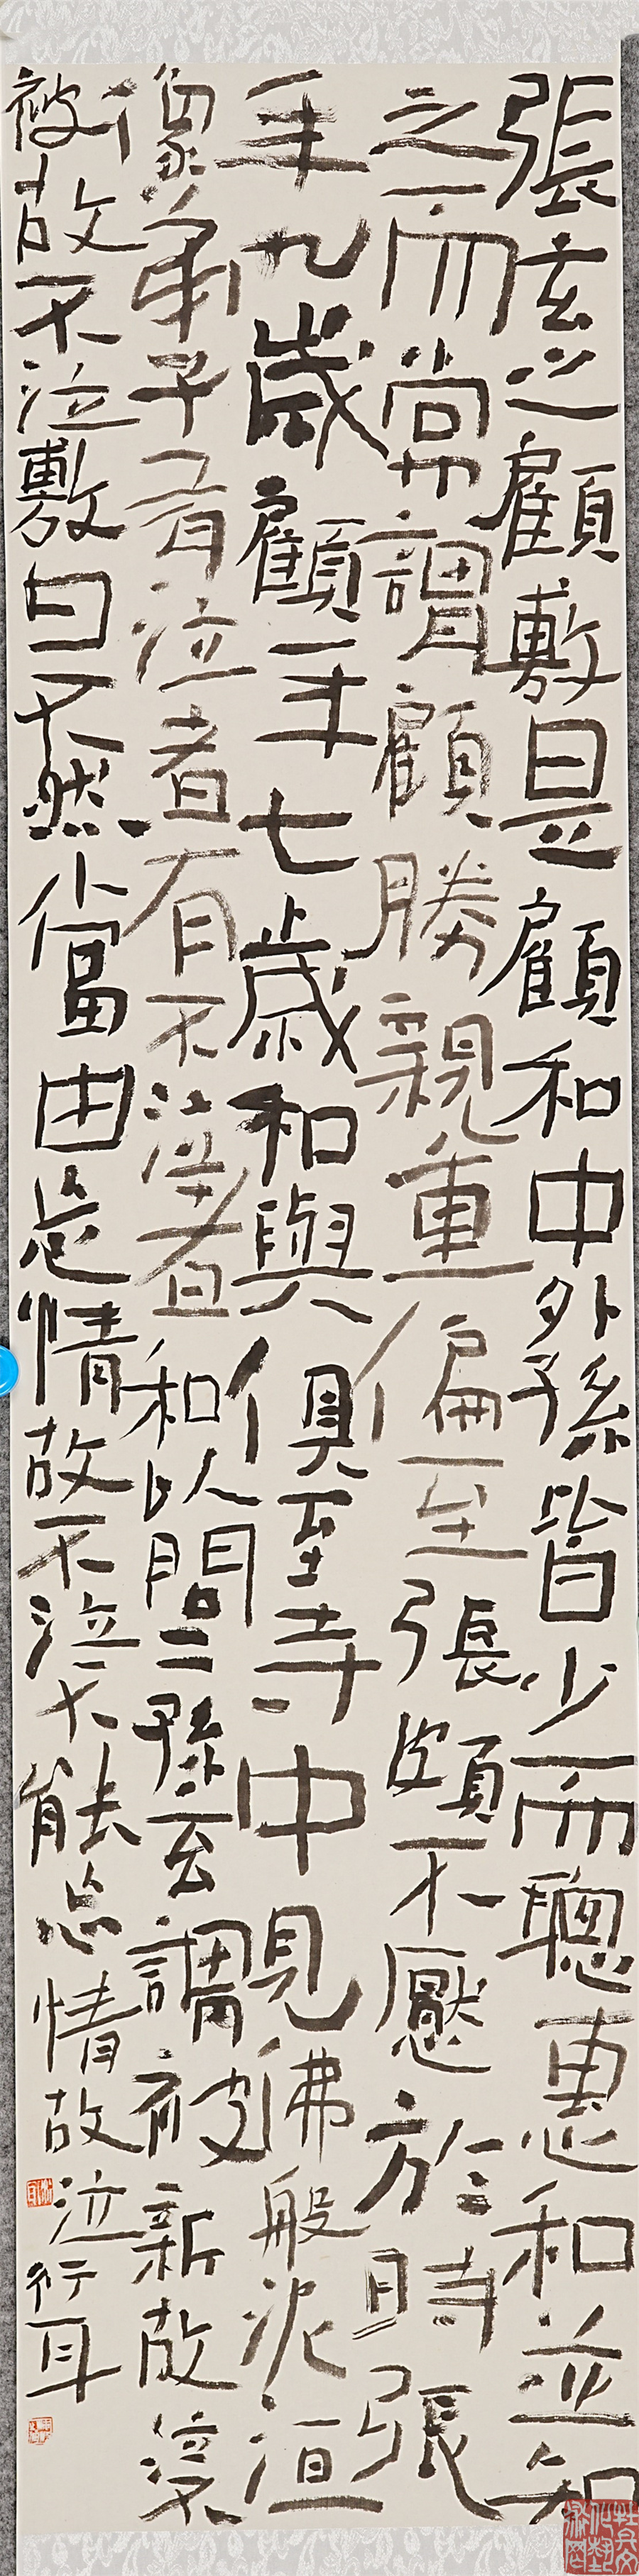 張玄之顧敷是顧和中外孫皆少而聰惠和並知
之而常謂顧勝親重偏至張頗不懕於時張
年九歲顧年七歲和與俱至寺中見佛般泥洹
像弟子有泣者有不泣者和以問二孫玄謂被新故泣不
被故不泣敷曰不然當由忘情故不泣不能忘情故泣行耳